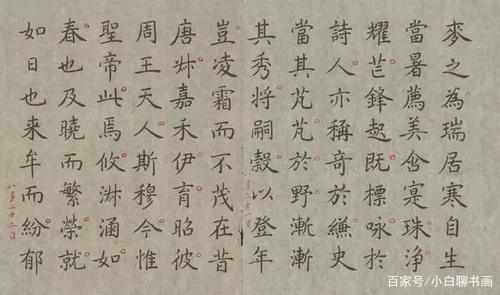 麥之為瑞居寒自生
當暑薦美含寔珠淨
耀芒鋒起既標咏於
詩人亦稱奇於縑史
當其芃芃於野漸漸
其秀將嗣穀以登年
豈凌霜而不茂在昔
唐叔嘉禾伊育昭彼
周王天人斯穆今惟
聖帝此焉攸淋涵如
春也及曉而繁榮就
如日也来牟而紛郁
八月二十二日
百家号/小白聊书画